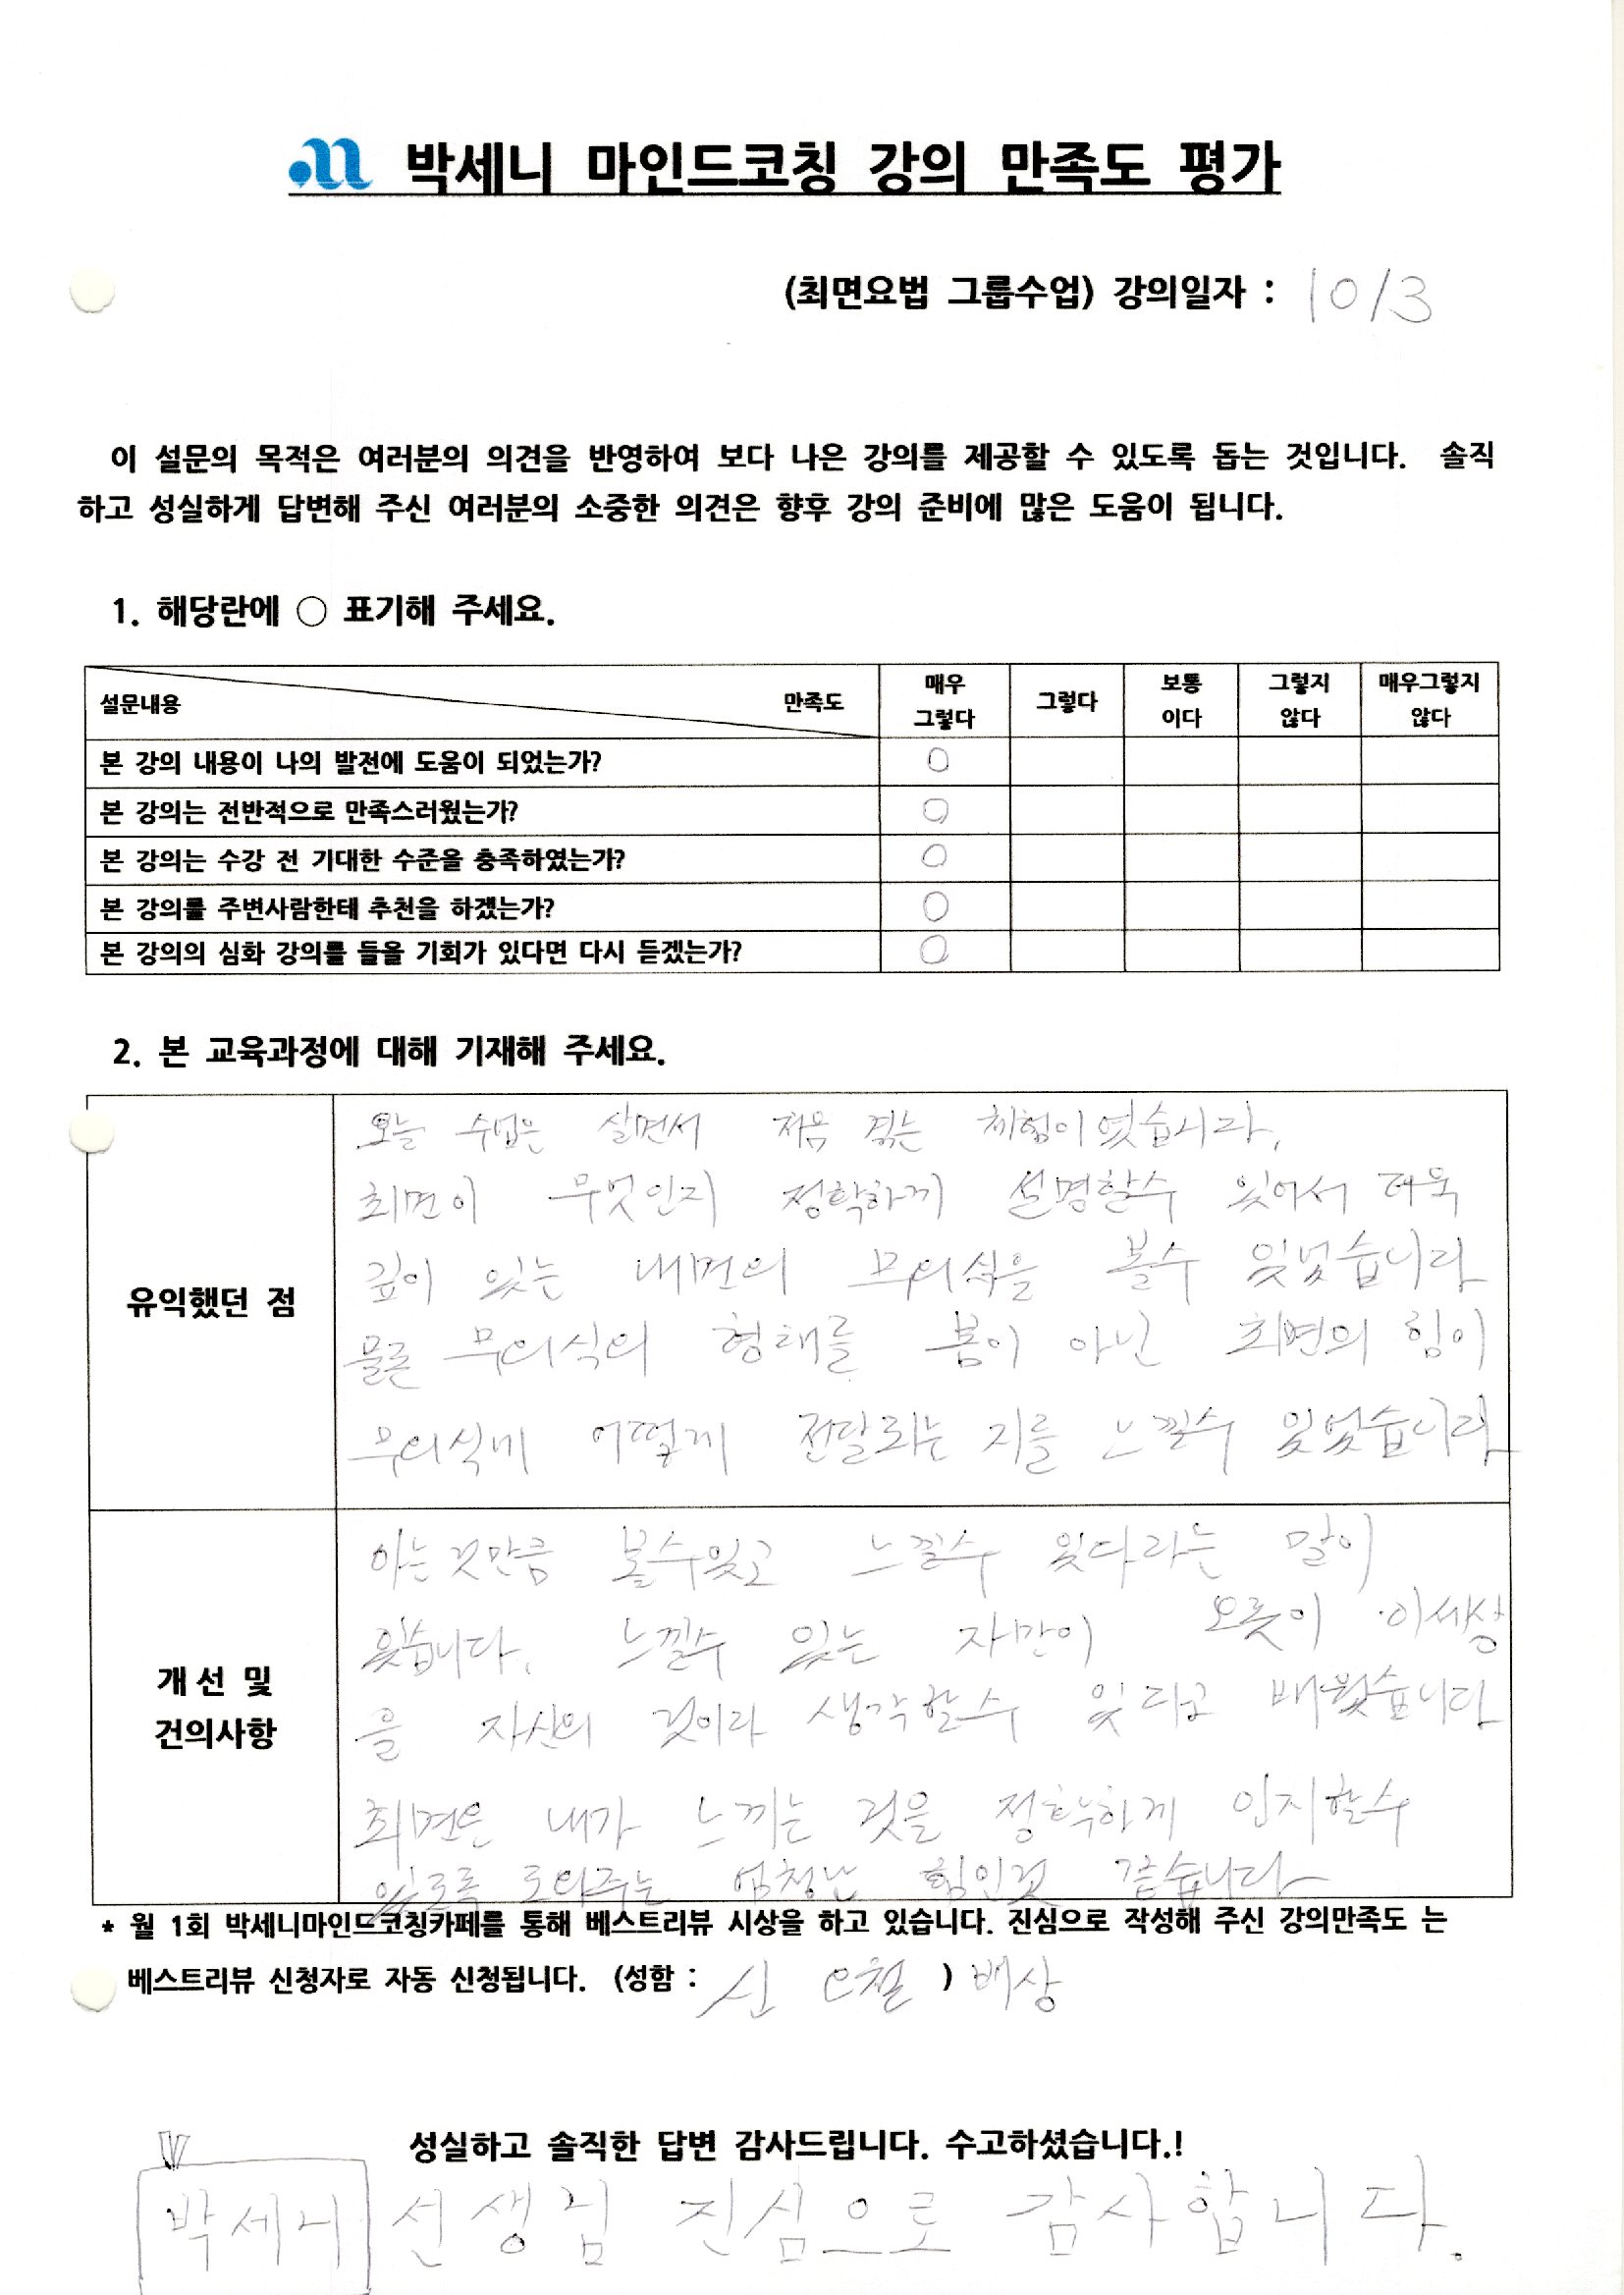 박세니 마인드코칭 강의 만족도 평가
(최면요법 그룹수업) 강의일자 : 10/3
이 설문의 목적은 여러분의 의견을 반영하여 보다 나은 강의를 제공할 수 있도록 돕는 것입니다. 솔직
하고 성실하게 답변해 주신 여러분의 소중한 의견은 향후 강의 준비에 많은 도움이 됩니다.
1. 해당란에 ○ 표기해 주세요.
설문내용 만족도 매우 그렇다 그렇다 보통 이다 그렇지 않다 매우그렇지 않다
본 강의 내용이 나의 발전에 도움이 되었는가? ○
본 강의는 전반적으로 만족스러웠는가? ○
본 강의는 수강 전 기대한 수준을 충족하였는가? ○
본 강의를 주변사람한테 추천을 하겠는가? ○
본 강의의 심화 강의를 들을 기회가 있다면 다시 듣겠는가? ○
2. 본 교육과정에 대해 기재해 주세요.
유익했던 점
오늘 수업은 살면서 처음 겪는 체험이였습니다.
최면이 무엇인지 정확하게 설명할수 있어서 더욱
깊이 있는 내면의 무의식을 볼수 있었습니다
물론 무의식의 형태를 봄이 아닌 최면의 힘이
무의식에 어떻게 전달되는 지를 느낄수 있었습니다
개선 및
건의사항
아는것만큼 볼수있고 느낄수 있다라는 말이
있습니다. 느낄수 있는 자만이 오롯이 이세상
을 자신의 것이라 생각할수 있다고 배웠습니다
최면은 내가 느끼는 것을 정확하게 인지할수
있도록 도와주는 엄청난 힘인것 같습니다
* 월 1회 박세니마인드코칭카페를 통해 베스트리뷰 시상을 하고 있습니다. 진심으로 작성해 주신 강의만족도 는
베스트리뷰 신청자로 자동 신청됩니다. (성함 : 신 철 ) 배상
성실하고 솔직한 답변 감사드립니다. 수고하셨습니다.!
박세니 선생님 진심으로 감사합니다.